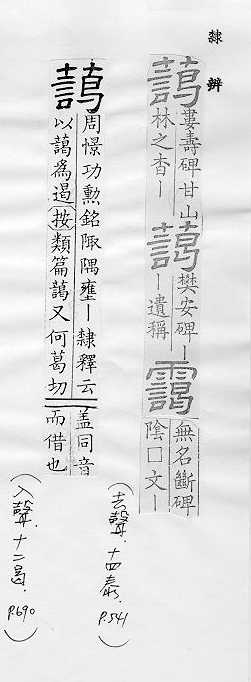 隸辨
藹
婁壽碑甘山
林之杳丨
藹
樊安碑丨
丨遺稱
靄
無名斷碑
陰囗文丨
(去聲．十四泰．p.541)
藹
周憬功勳銘陬隅壅丨隸釋云
以藹爲遏按類篇藹又何葛切
蓋同音
而借也
(入聲．十二曷．p.690)